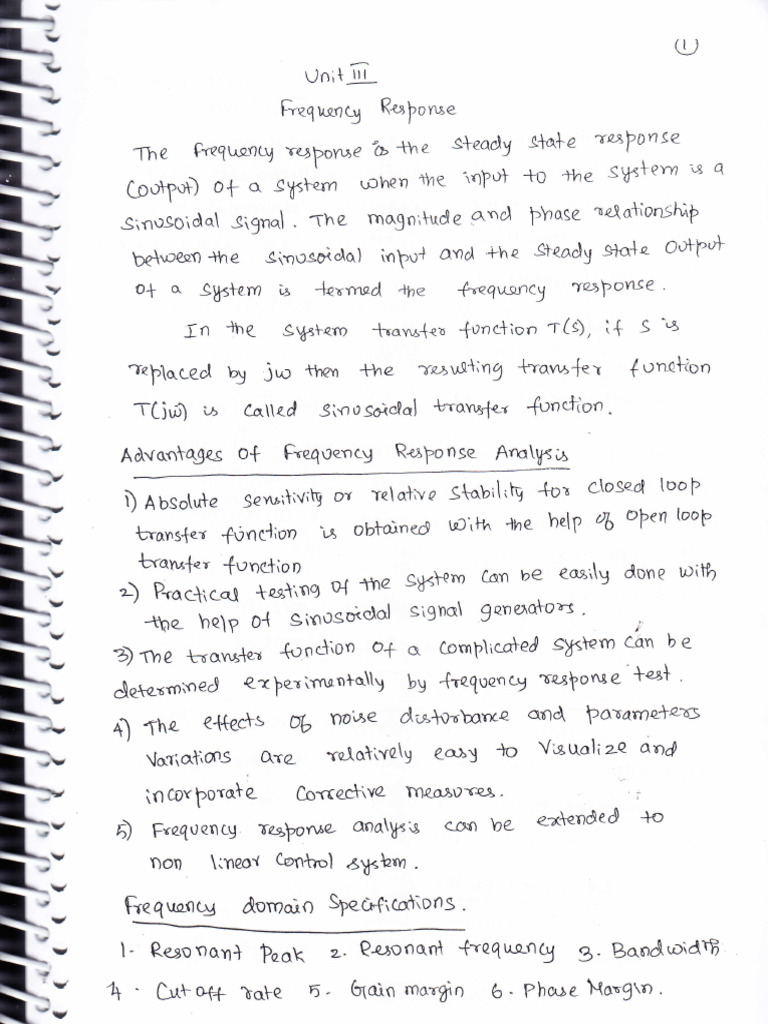 (1)
Unit III
Frequency Response
The frequency response is the steady state response
(output) of a system when the input to the system is a
sinusoidal signal. The magnitude and phase relationship
between the sinusoidal input and the steady state output
of a system is termed the frequency response.
In the system transfer function T(s), if s is
replaced by jw then the resulting transfer function
T(jw) is called sinusoidal transfer function.
Advantages of Frequency Response Analysis
1) Absolute sensitivity or relative stability for closed loop
transfer function is obtained with the help of open loop
transfer function
2) Practical testing of the system can be easily done with
the help of sinusoidal signal generators.
3) The transfer function of a complicated system can be
determined experimentally by frequency response test.
4) The effects of noise disturbance and parameters
variations are relatively easy to visualize and
incorporate corrective measures.
5) Frequency response analysis can be extended to
non linear control system.
Frequency domain Specifications.
1. Resonant Peak 2. Resonant frequency 3. Bandwidth
4. Cut off rate 5. Gain margin 6. Phase Margin.